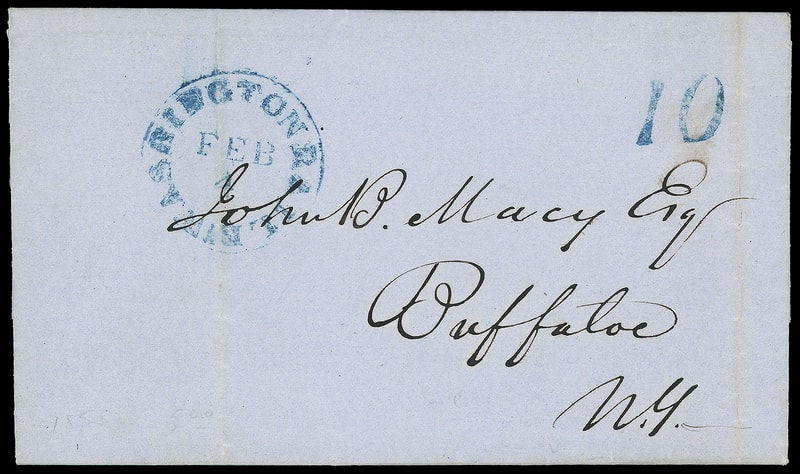 SHINGTON R
FEB
10
John B. Macy Esq
Buffaloe
N.Y.